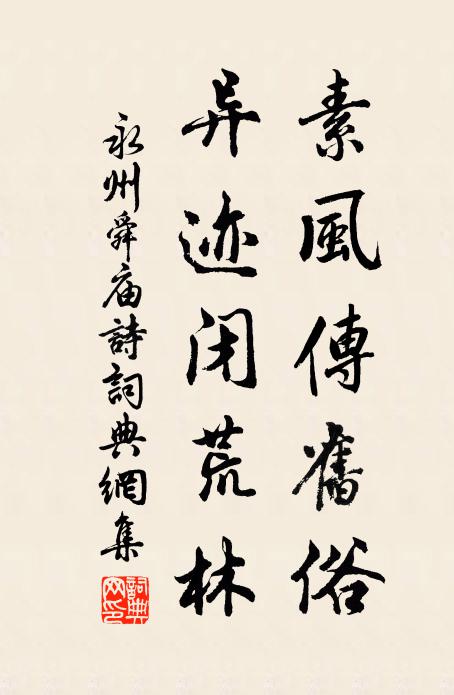 素風傳舊俗
异迹闭荒林
永州舜庙詩詞典網集
詞典网印